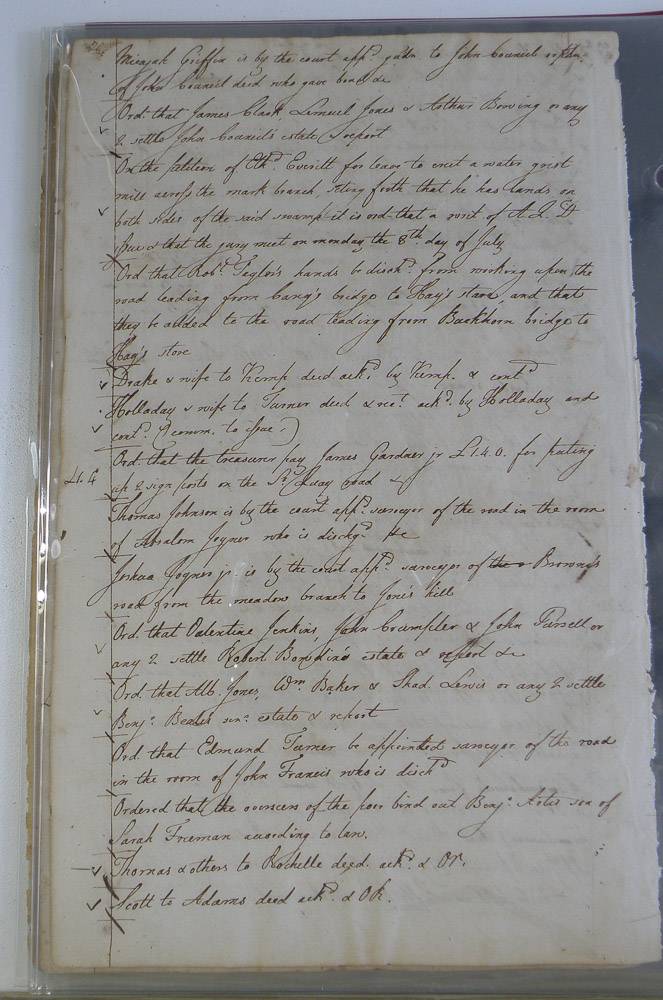 Micajah Griffin is by the court app.d gudn. to John Council orphn.
of John Council decd who gave bond &c
Ord. that James Clark, Lemuel Jones & Arthur Bowing or any
2 settle John Council's estate & report
On the petition of Eth.d Everitt for leave to erect a water grist
mill across the mark branch, setting forth that he has lands on
both sides of the said swamp it is ord. that a writ of A. Q. D
issue & that the jury meet on monday the 8th. day of July
Ord that Rob.t Taylor's hands be disch.d from working upon the
road leading from Cany's bridge to Hay's store, and that
they be added to the road leading from Buckhorn bridge to
Hay's store
Drake & wife to Kemp deed ack.d by Kemp. & cont.d
Holladay & wife to Turner deed & rec.t ack.d by Holladay and
cont.d (comm. to issue.)
£1.4 Ord. that the treasurer pay James Gardner jr £1.4.0. for puting
up 2 sign posts on the So. Quay road
Thomas Johnson is by the court app.d surveyor of the road in the room
of Absalom Joyner who is dischg.d &c
Joshua Joyner jr. is by the court app.d surveyor of the Brown's
road from the meadow branch to Jone's hill
Ord. that Valentine Jenkins, John Crumpler & John Pursell or
any 2 settle Robert Bowdin's estate & report &c
Ord. that Alb. Jones, Wm. Baker & Shad. Lewis or any 2 settle
Benj.n Beales senr. estate & report
Ord. that Edmund Turner be appointed surveyor of the road
in the room of John Francis who is disch.d
Ordered that the overseers of the poor bind out Benj.n Artis son of
Sarah Freeman according to law.
Thomas & others to Rochelle deed. ack.d & OR.
Scott to Adams deed ack.d & OR.